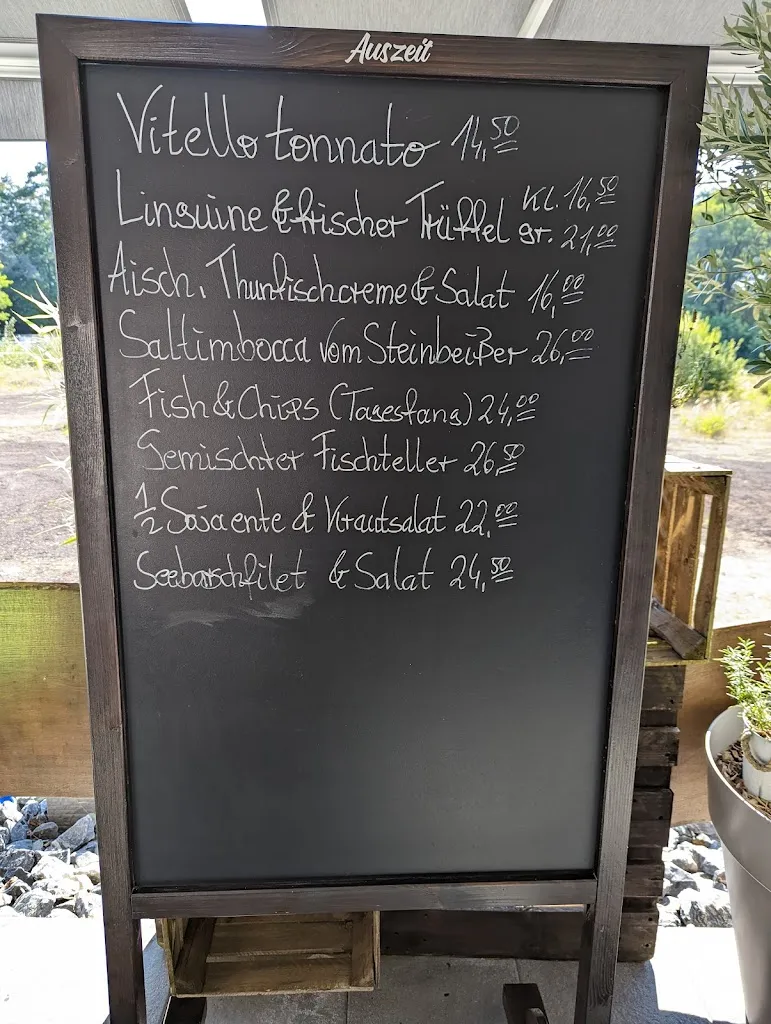 Auszeit
Vitello tonnato 14,50
Linguine & frischer Trüffel Kl. 16,50
gr. 21,00
Aisch. Thunfischcreme & Salat 16,00
Saltimbocca vom Steinbeißer 26,00
Fish & Chips (Tagesfang) 24,00
Gemischter Fischteller 26,50
1/2 Sojaente & Krautsalat 22,00
Seebarschfilet & Salat 24,50